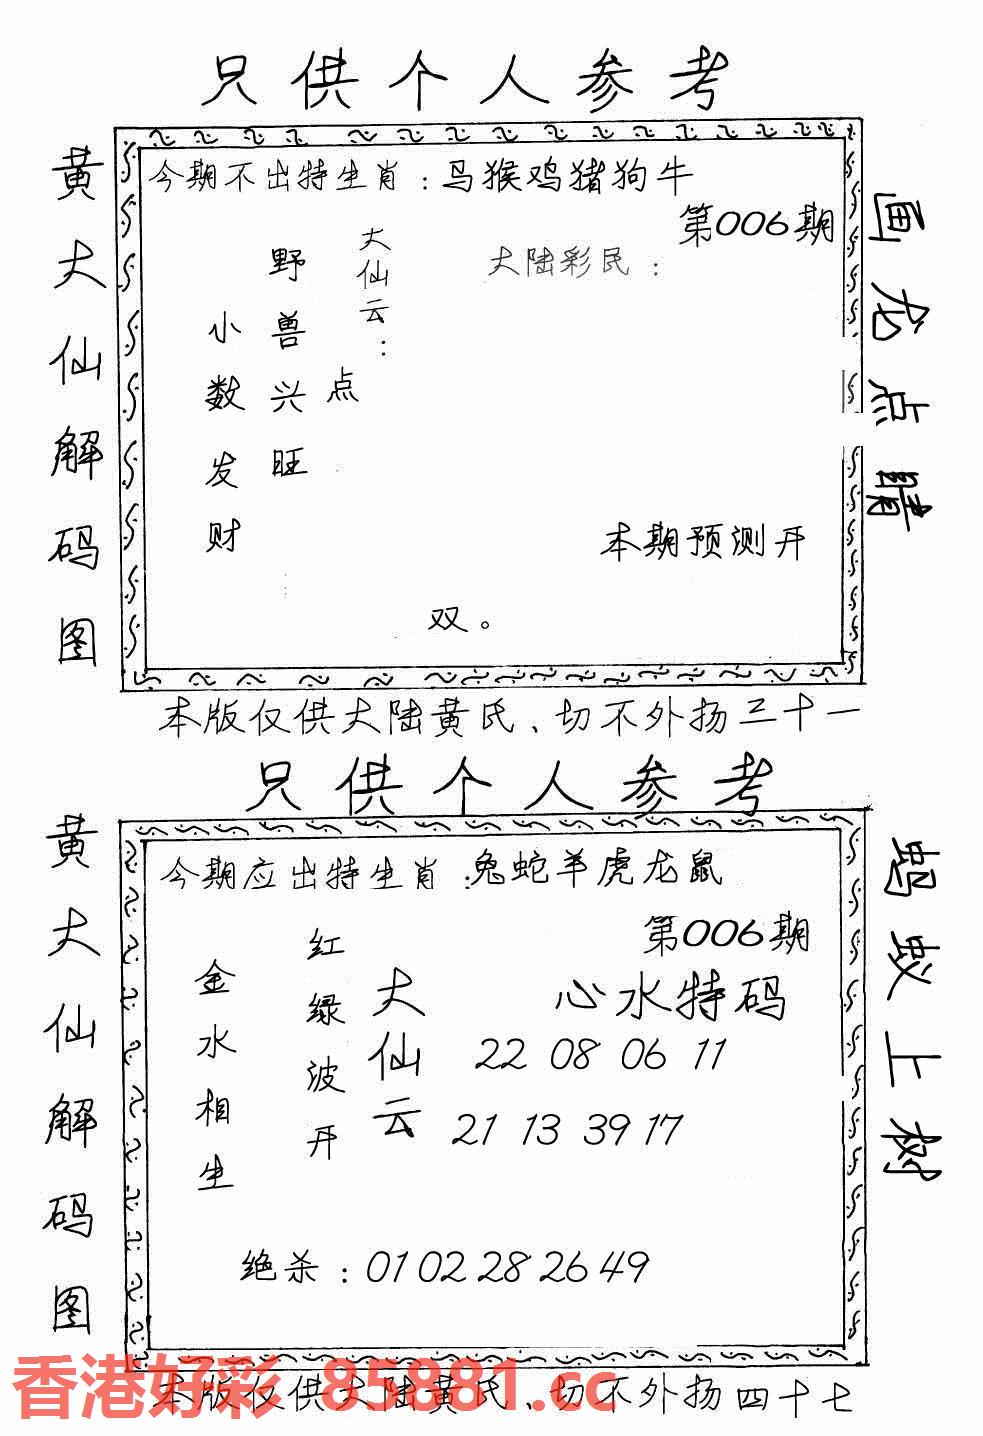 只供个人参考
黄大仙解码图
今期不出特生肖：马猴鸡猪狗牛
第006期
大陆彩民：
大仙云：
点
野兽兴旺
小数发财
本期预测开
双。
画龙点睛
本版仅供大陆黄氏、切不外扬三十一
只供个人参考
黄大仙解码图
今期应出特生肖：兔蛇羊虎龙鼠
第006期
心水特码
大仙云
红绿波开
金水相生
22 08 06 11
21 13 39 17
绝杀：01 02 28 26 49
蚂蚁上树
本版仅供大陆黄氏、切不外扬四十七
香港好彩 85881.cc